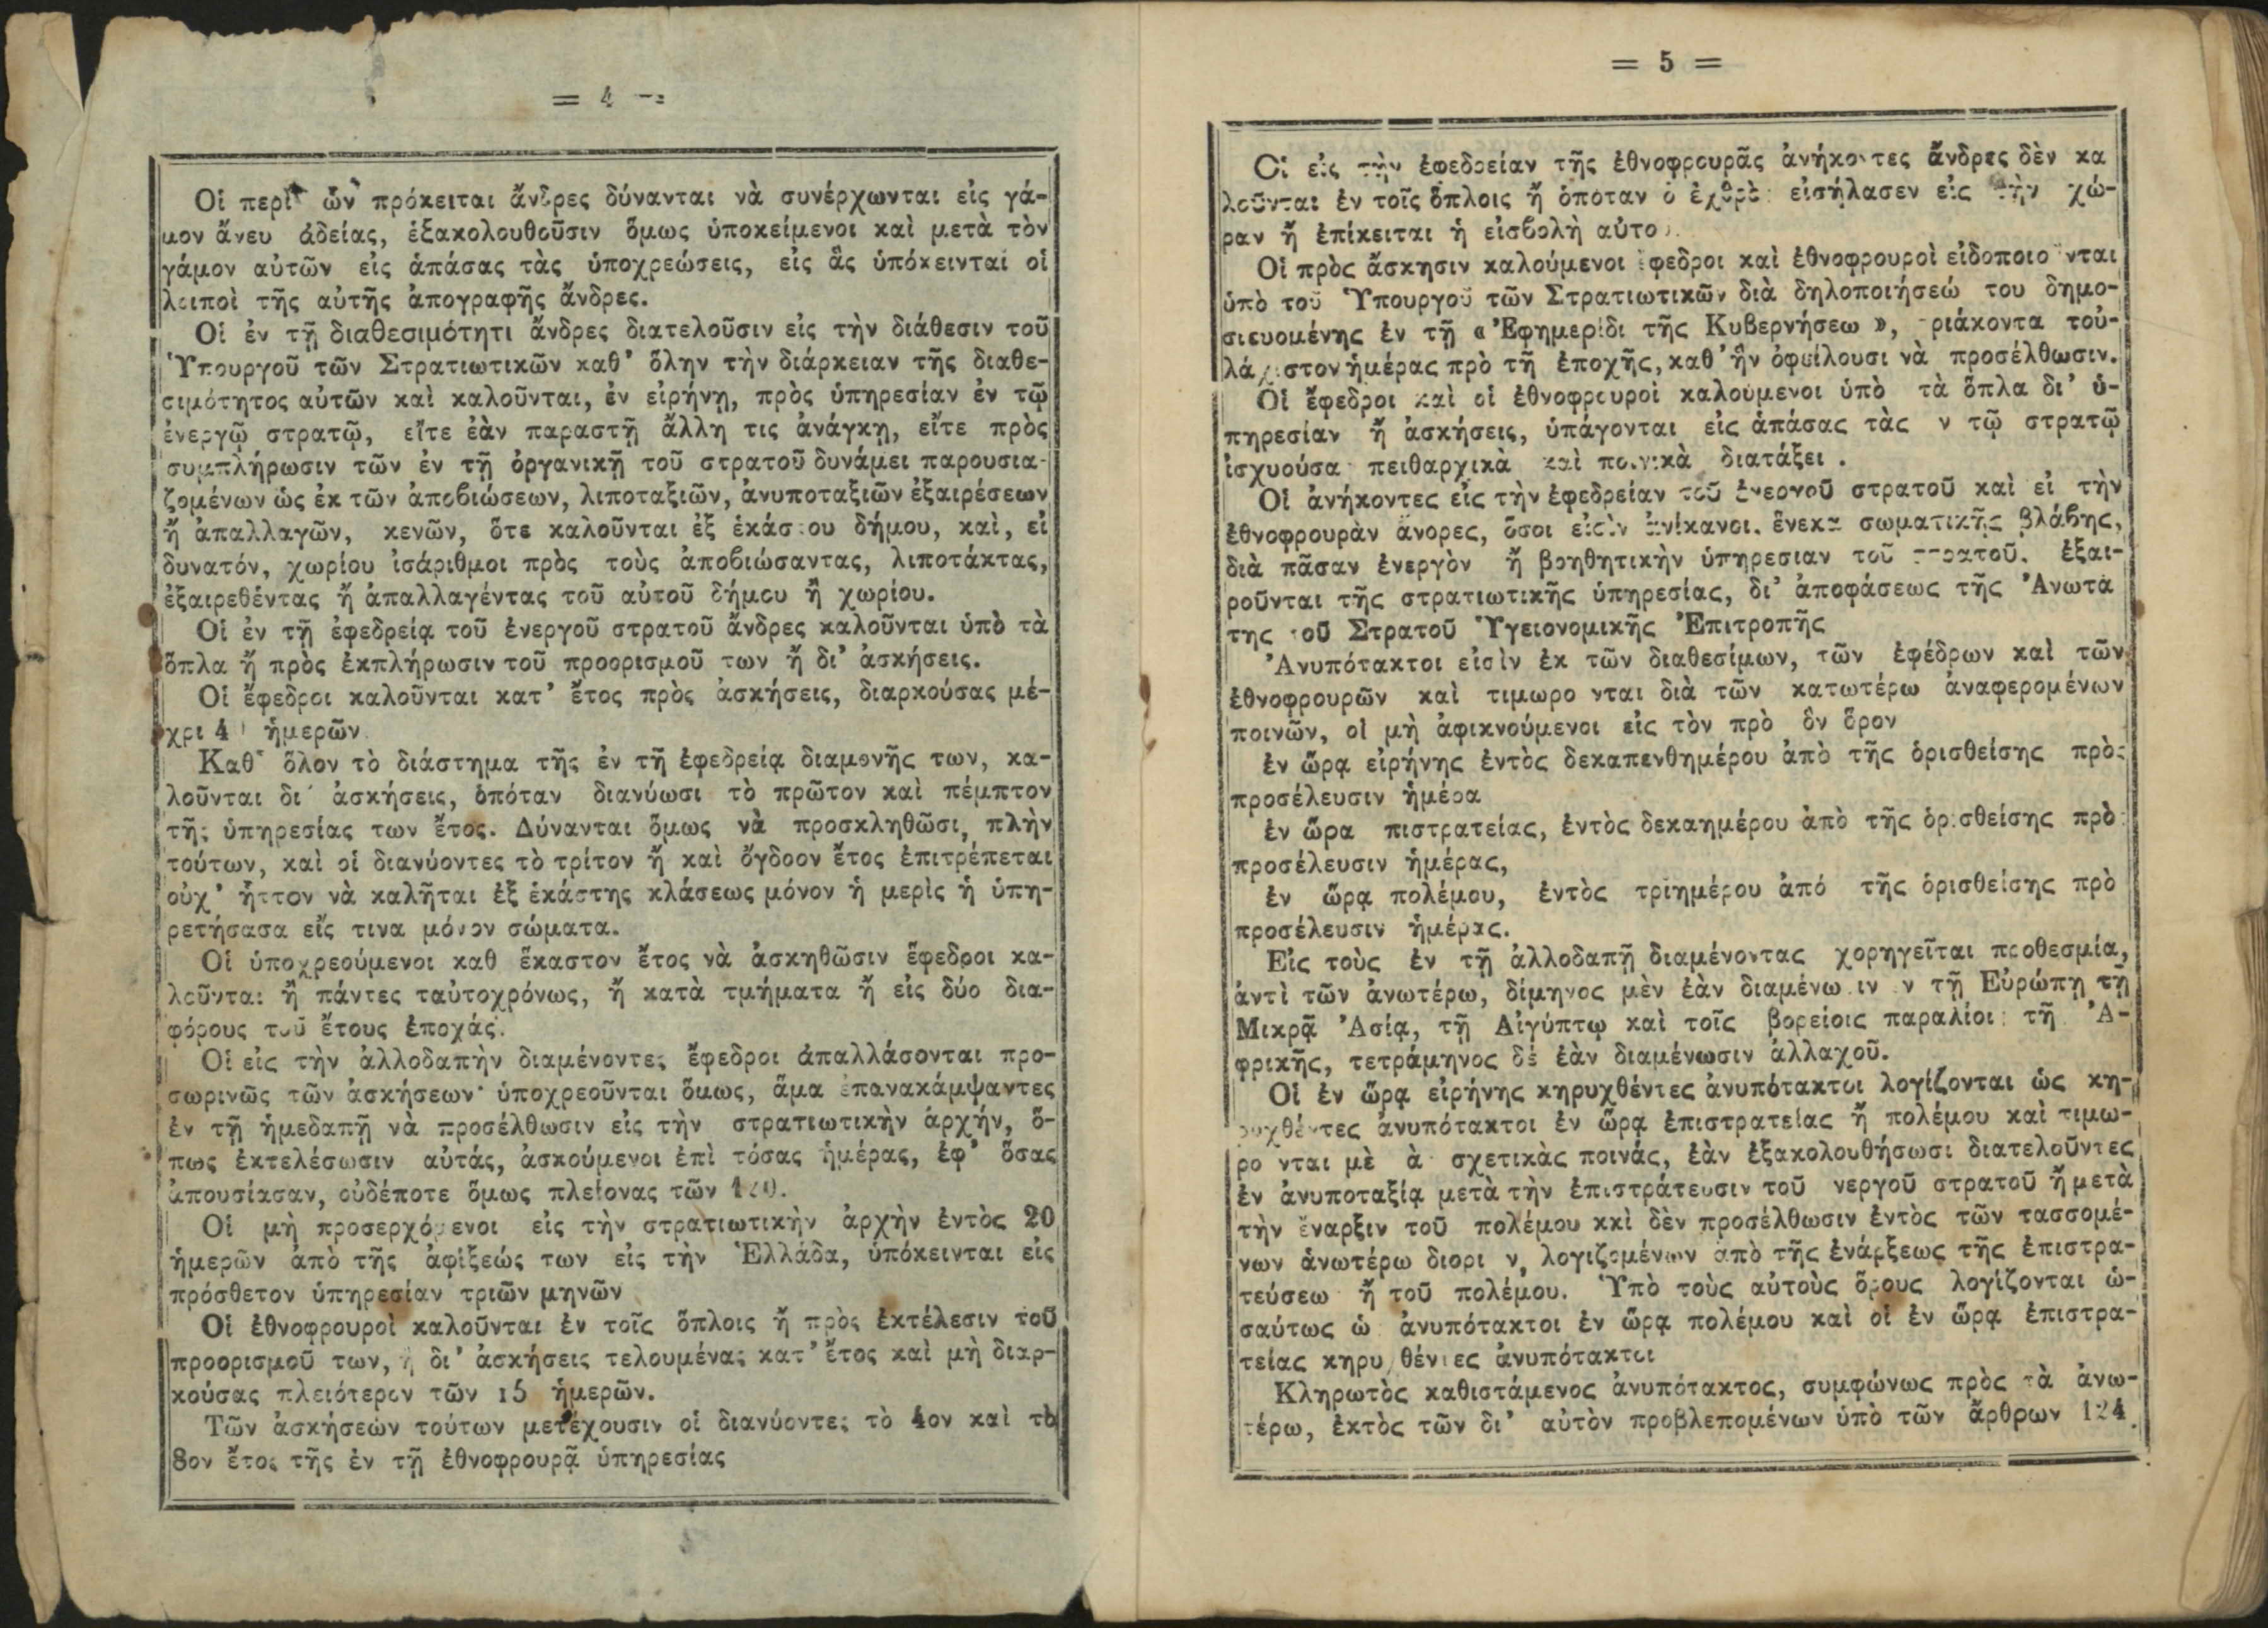 = 4 =
Οἱ περὶ ὧν πρόκειται ἄνδρες δύνανται νὰ συνέρχωνται εἰς γά-
μον ἄνευ ἀδείας, ἐξακολουθοῦσιν ὅμως ὑποκείμενοι καὶ μετὰ τὸν
γάμον αὐτῶν εἰς ἁπάσας τὰς ὑποχρεώσεις, εἰς ἃς ὑπόκεινται οἱ
λοιποὶ τῆς αὐτῆς ἀπογραφῆς ἄνδρες.
Οἱ ἐν τῇ διαθεσιμότητι ἄνδρες διατελοῦσιν εἰς τὴν διάθεσιν τοῦ
Ὑπουργοῦ τῶν Στρατιωτικῶν καθ' ὅλην τὴν διάρκειαν τῆς διαθε-
σιμότητος αὐτῶν καὶ καλοῦνται, ἐν εἰρήνῃ, πρὸς ὑπηρεσίαν ἐν τῷ
ἐνεργῷ στρατῷ, εἴτε ἐὰν παραστῇ ἄλλη τις ἀνάγκη, εἴτε πρὸς
συμπλήρωσιν τῶν ἐν τῇ ὀργανικῇ τοῦ στρατοῦ δυνάμει παρουσια-
ζομένων ὡς ἐκ τῶν ἀποβιώσεων, λιποταξιῶν, ἀνυποταξιῶν ἐξαιρέσεων
ἢ ἀπαλλαγῶν, κενῶν, ὅτε καλοῦνται ἐξ ἑκάστου δήμου, καὶ, εἰ
δυνατόν, χωρίου ἰσάριθμοι πρὸς τοὺς ἀποβιώσαντας, λιποτάκτας,
ἐξαιρεθέντας ἢ ἀπαλλαγέντας τοῦ αὐτοῦ δήμου ἢ χωρίου.
Οἱ ἐν τῇ ἐφεδρείᾳ τοῦ ἐνεργοῦ στρατοῦ ἄνδρες καλοῦνται ὑπὸ τὰ
ὅπλα ἢ πρὸς ἐκπλήρωσιν τοῦ προορισμοῦ των ἢ δι' ἀσκήσεις.
Οἱ ἔφεδροι καλοῦνται κατ' ἔτος πρὸς ἀσκήσεις, διαρκούσας μέ-
χρι 4 ἡμερῶν
Καθ' ὅλον τὸ διάστημα τῆς ἐν τῇ ἐφεδρείᾳ διαμονῆς των, κα-
λοῦνται δι' ἀσκήσεις, ὁπόταν διανύωσι τὸ πρῶτον καὶ πέμπτον
τῆς ὑπηρεσίας των ἔτος. Δύνανται ὅμως νὰ προσκληθῶσι, πλὴν
τούτων, καὶ οἱ διανύοντες τὸ τρίτον ἢ καὶ ὄγδοον ἔτος ἐπιτρέπεται
οὐχ' ἧττον νὰ καλῆται ἐξ ἑκάστης κλάσεως μόνον ἡ μερὶς ἡ ὑπη-
ρετήσασα εἴς τινα μόνον σώματα.
Οἱ ὑποχρεούμενοι καθ ἕκαστον ἔτος νὰ ἀσκηθῶσιν ἔφεδροι κα-
λοῦνται ἢ πάντες ταὐτοχρόνως, ἢ κατὰ τμήματα ἢ εἰς δύο δια-
φόρους τοῦ ἔτους ἐποχάς.
Οἱ εἰς τὴν ἀλλοδαπὴν διαμένοντες ἔφεδροι ἀπαλλάσονται προ-
σωρινῶς τῶν ἀσκήσεων· ὑποχρεοῦνται ὅμως, ἅμα ἐπανακάμψαντες
ἐν τῇ ἡμεδαπῇ νὰ προσέλθωσιν εἰς τὴν στρατιωτικὴν ἀρχήν, ὅ-
πως ἐκτελέσωσιν αὐτάς, ἀσκούμενοι ἐπὶ τόσας ἡμέρας, ἐφ' ὅσας
ἀπουσίασαν, οὐδέποτε ὅμως πλείονας τῶν 120.
Οἱ μὴ προσερχόμενοι εἰς τὴν στρατιωτικὴν ἀρχὴν ἐντὸς 20
ἡμερῶν ἀπὸ τῆς ἀφίξεώς των εἰς τὴν Ἑλλάδα, ὑπόκεινται εἰς
πρόσθετον ὑπηρεσίαν τριῶν μηνῶν
Οἱ ἐθνοφρουροὶ καλοῦνται ἐν τοῖς ὅπλοις ἢ πρὸς ἐκτέλεσιν τοῦ
προορισμοῦ των, ἢ δι' ἀσκήσεις τελουμένας κατ' ἔτος καὶ μὴ διαρ-
κούσας πλειότερον τῶν 15 ἡμερῶν.
Τῶν ἀσκήσεὼν τούτων μετέχουσιν οἱ διανύοντες τὸ 4ον καὶ τὸ
8ον ἔτος τῆς ἐν τῇ ἐθνοφρουρᾷ ὑπηρεσίας
= 5 =
Οἱ εἰς τὴν ἐφεδρείαν τῆς ἐθνοφρουρᾶς ἀνήκοντες ἄνδρες δὲν κα
λοῦνται ἐν τοῖς ὅπλοις ἢ ὁπόταν ὁ ἐχθρὸς εἰσήλασεν εἰς τὴν χώ-
ραν ἢ ἐπίκειται ἡ εἰσβολὴ αὐτο
Οἱ πρὸς ἄσκησιν καλούμενοι ἔφεδροι καὶ ἐθνοφρουροὶ εἰδοποιο νται
ὑπὸ τοῦ Ὑπουργοῦ τῶν Στρατιωτικῶν διὰ δηλοποιήσεώ του δημο-
σιευομένης ἐν τῇ «Ἐφημερίδι τῆς Κυβερνήσεω », ριάκοντα τοὐ-
λάχιστον ἡμέρας πρὸ τῆ ἐποχῆς, καθ' ἣν ὀφείλουσι νὰ προσέλθωσιν.
Οἱ ἔφεδροι καὶ οἱ ἐθνοφρουροὶ καλούμενοι ὑπὸ τὰ ὅπλα δι' ὑ-
πηρεσίαν ἢ ἀσκήσεις, ὑπάγονται εἰς ἁπάσας τὰς ν τῷ στρατῷ
ἰσχυούσα πειθαρχικὰ καὶ ποινικὰ διατάξει .
Οἱ ἀνήκοντες εἰς τὴν ἐφεδρείαν τοῦ ἐνεργοῦ στρατοῦ καὶ εἰ τὴν
ἐθνοφρουρὰν ἄνδρες, ὅσοι εἰσὶν ἀνίκανοι. ἕνεκα σωματικῆς βλάβης,
διὰ πᾶσαν ἐνεργὸν ἢ βοηθητικὴν ὑπηρεσιαν τοῦ στρατοῦ. ἐξαι-
ροῦνται τῆς στρατιωτικῆς ὑπηρεσίας, δι' ἀποφάσεως τῆς Ἀνωτά
της τοῦ Στρατοῦ Ὑγειονομικῆς Ἐπιτροπῆς
Ἀνυπότακτοι εἰσὶν ἐκ τῶν διαθεσίμων, τῶν ἐφέδρων καὶ τῶν
ἐθνοφρουρῶν καὶ τιμωρο νται διὰ τῶν κατωτέρω ἀναφερομένων
ποινῶν, οἱ μὴ ἀφικνούμενοι εἰς τὸν πρὸ ὃν ὅρον
ἐν ὥρᾳ εἰρήνης ἐντὸς δεκαπενθημέρου ἀπὸ τῆς ὁρισθείσης πρὸς
προσέλευσιν ἡμέρα
ἐν ὥρα πιστρατείας, ἐντὸς δεκαημέρου ἀπὸ τῆς ὁρισθείσης πρὸ
προσέλευσιν ἡμέρας,
ἐν ὥρᾳ πολέμου, ἐντὸς τριημέρου ἀπό τῆς ὁρισθείσης πρὸ
προσέλευσιν ἡμέρας.
Εἰς τοὺς ἐν τῇ ἀλλοδαπῇ διαμένοντας χορηγεῖται προθεσμία,
ἀντὶ τῶν ἀνωτέρω, δίμηνος μὲν ἐὰν διαμένω ιν ν τῇ Εὐρώπῃ τῇ
Μικρᾷ Ἀσίᾳ, τῇ Αἰγύπτῳ καὶ τοῖς βορείοις παραλίοι τῆ Ἀ-
φρικῆς, τετράμηνος δὲ ἐὰν διαμένωσιν ἀλλαχοῦ.
Οἱ ἐν ὥρᾳ εἰρήνης κηρυχθέντες ἀνυπότακτοι λογίζονται ὡς κη-
ρυχθέντες ἀνυπότακτοι ἐν ὥρᾳ ἐπιστρατείας ἢ πολέμου καὶ τιμω-
ρο νται μὲ ὰ σχετικὰς ποινάς, ἐὰν ἐξακολουθήσωσι διατελοῦντες
ἐν ἀνυποταξίᾳ μετὰ τὴν ἐπιστράτευσιν τοῦ νεργοῦ στρατοῦ ἢ μετὰ
τὴν ἔναρξιν τοῦ πολέμου κκὶ δὲν προσέλθωσιν ἐντὸς τῶν τασσομέ-
νων ἀνωτέρω διορι ν, λογιζομένων ἀπὸ τῆς ἐνάρξεως τῆς ἐπιστρα-
τεύσεω ἢ τοῦ πολέμου. Ὑπὸ τοὺς αὐτοὺς ὅρους λογίζονται ὡ-
σαύτως ὡ ἀνυπότακτοι ἐν ὥρᾳ πολέμου καὶ οἱ ἐν ὥρᾳ ἐπιστρα-
τείας κηρυχθέντες ἀνυπότακτοι
Κληρωτὸς καθιστάμενος ἀνυπότακτος, συμφώνως πρὸς τὰ ἀνω-
τέρω, ἐκτὸς τῶν δι' αὐτὸν προβλεπομένων ὑπὸ τῶν ἄρθρων 124